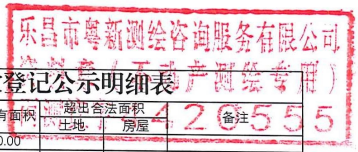 乐昌市粤新测绘咨询服务有限公司
(不动产测绘专用)
登记公示明细表
有面积 超出合法面积 备注
土地 房屋
0.00
420555